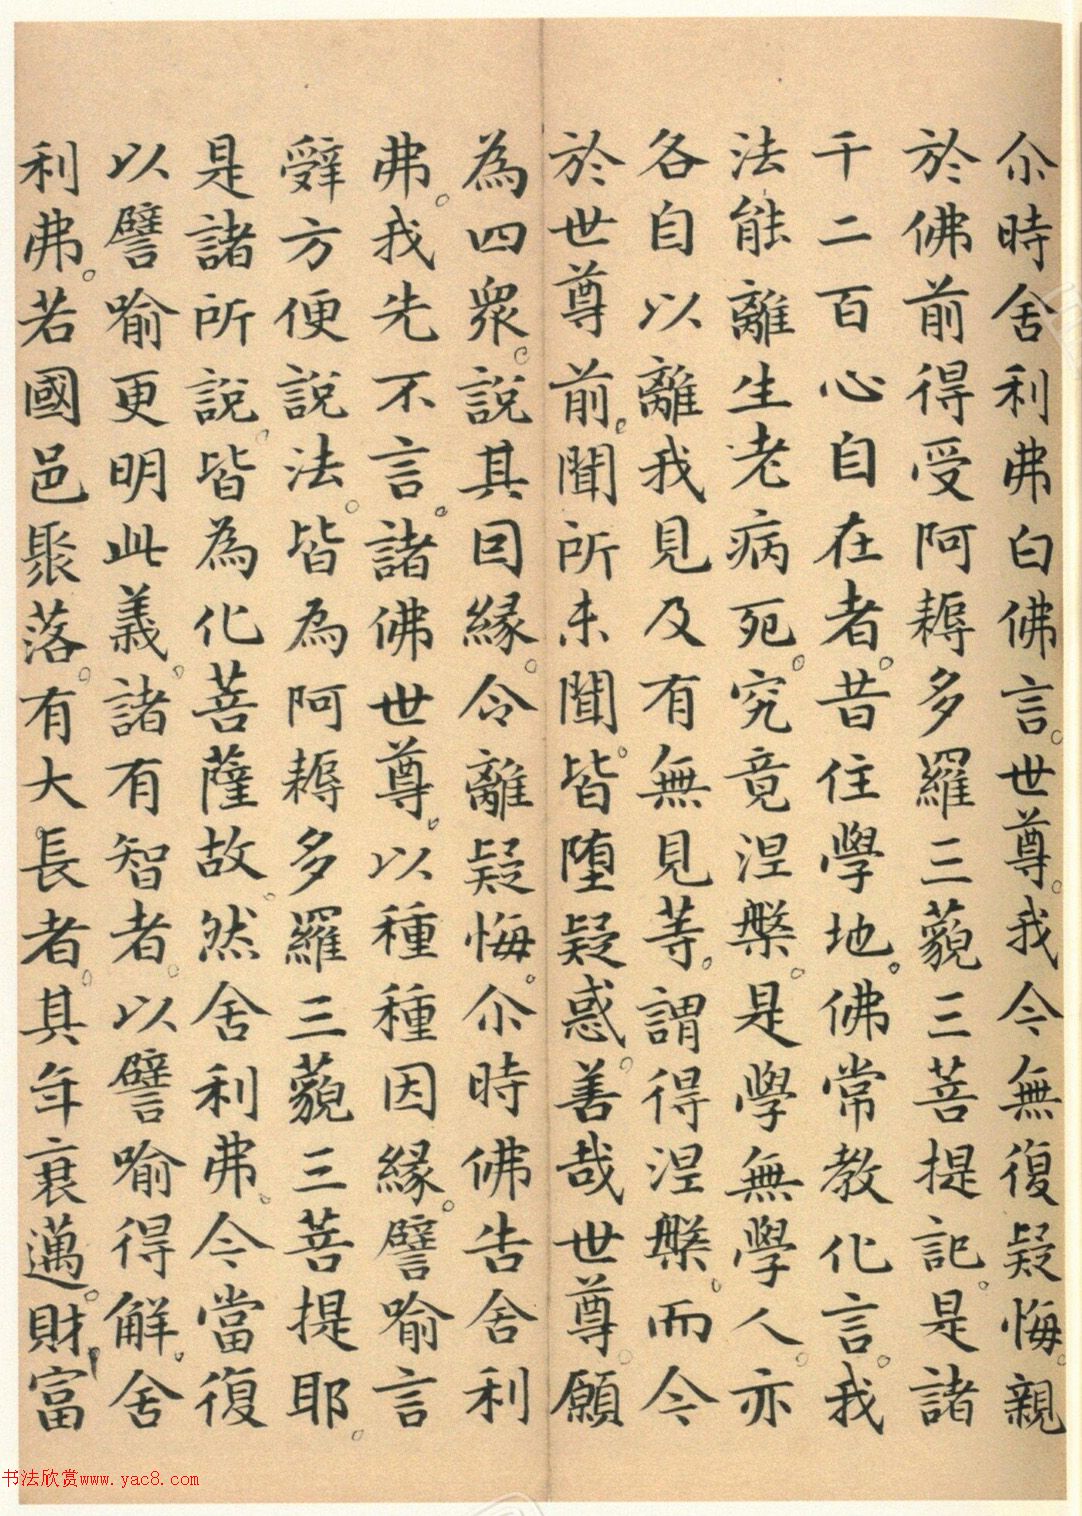 尒時舍利弗白佛言。世尊。我今無復疑悔。親
於佛前得受阿耨多羅三藐三菩提記。是諸
千二百心自在者。昔住學地。佛常教化言。我
法能離生老病死。究竟涅槃。是學無學人。亦
各自以離我見及有無見等。謂得涅槃。而今
於世尊前。聞所未聞。皆墮疑惑。善哉世尊。願
為四衆。說其囙緣。令離疑悔。尒時佛告舍利
弗。我先不言。諸佛世尊。以種種因緣。譬喻言
辭方便說法。皆為阿耨多羅三藐三菩提耶。
是諸所說。皆為化菩薩故。然舍利弗。今當復
以譬喻更明此義。諸有智者。以譬喻得解。舍
利弗。若國邑聚落。有大長者。其年衰邁。財富
书法欣赏www.yac8.com